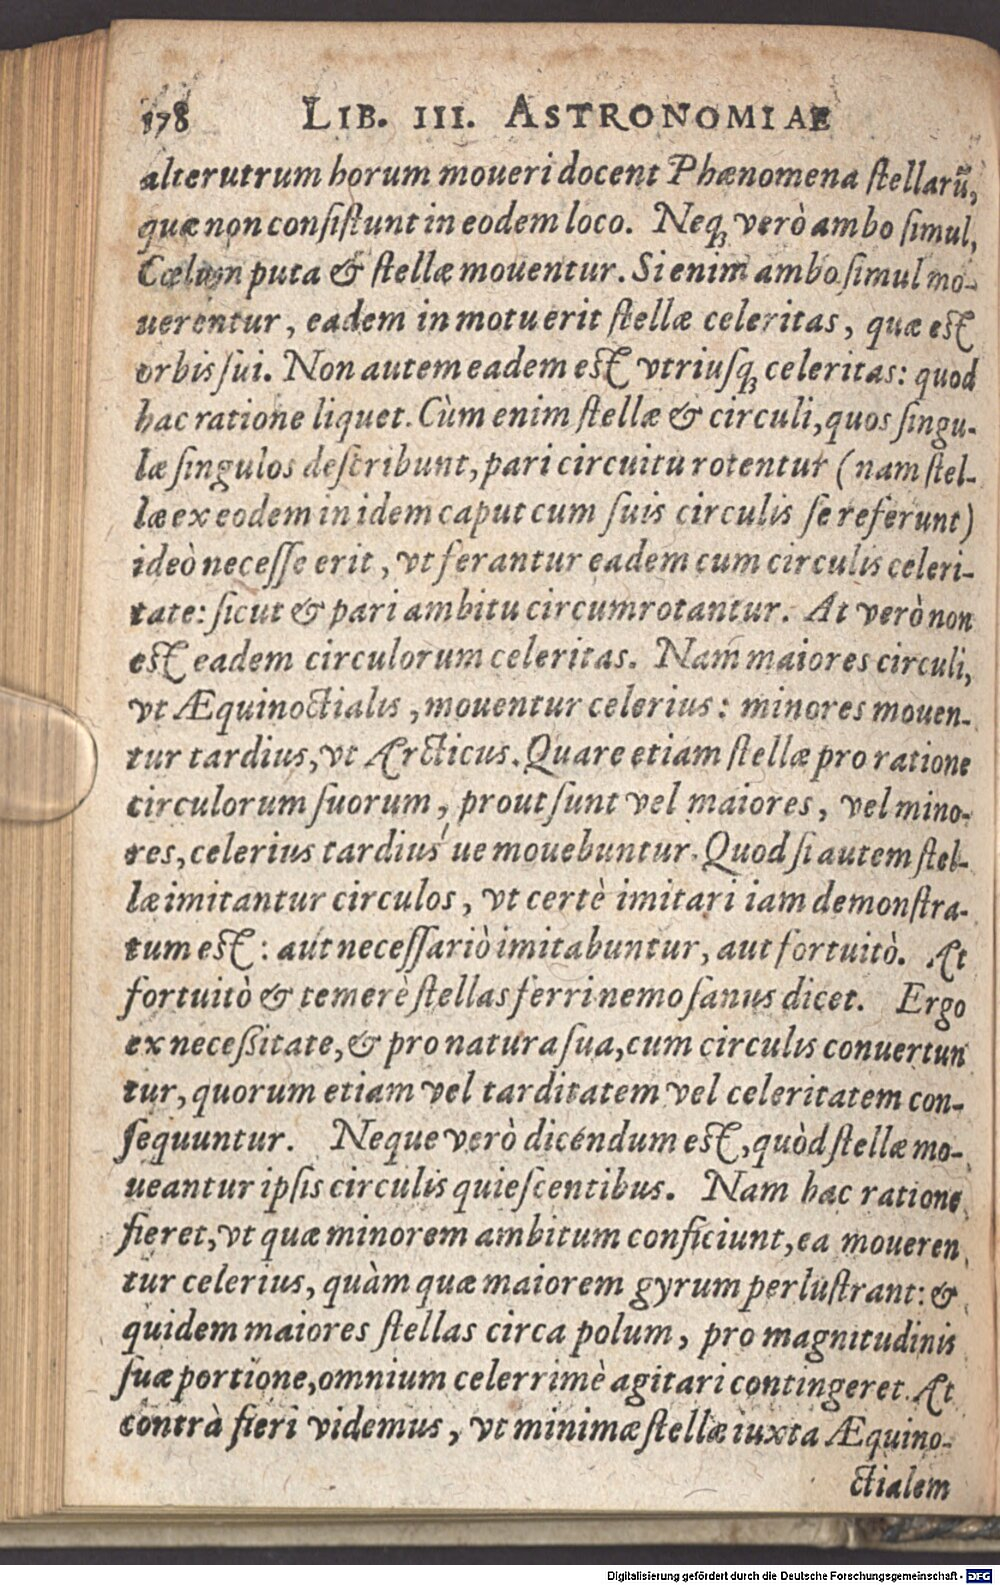 178 LIB. III. ASTRONOMIAE
alterutrum horum moueri docent Phænomena stellarũ,
quæ non consistunt in eodem loco. Neq; verò ambo simul,
Cœlum puta & stellæ mouentur. Si enim ambo simul mo-
uerentur, eadem in motu erit stellæ celeritas, quæ est
orbis sui. Non autem eadem est vtriusq; celeritas: quod
hac ratione liquet. Cùm enim stellæ & circuli, quos singu-
læ singulos describunt, pari circuitu rotentur (nam stel-
læ ex eodem in idem caput cum suis circulis se referunt)
ideò necesse erit, vt ferantur eadem cum circulis celeri-
tate: sicut & pari ambitu circumrotantur. At verò non
est eadem circulorum celeritas. Nam maiores circuli,
vt Æquinoctialis, mouentur celerius: minores mouen-
tur tardius, vt Arcticus. Quare etiam stellæ pro ratione
circulorum suorum, prout sunt vel maiores, vel mino-
res, celerius tardius' ue mouebuntur. Quod si autem stel-
læ imitantur circulos, vt certè imitari iam demonstra-
tum est: aut necessariò imitabuntur, aut fortuitò. At
fortuitò & temerè stellas ferri nemo sanus dicet. Ergo
ex necessitate, & pro natura sua, cum circulis conuertun
tur, quorum etiam vel tarditatem vel celeritatem con-
sequuntur. Neque verò dicendum est, quòd stellæ mo-
ueantur ipsis circulis quiescentibus. Nam hac ratione
fieret, vt quæ minorem ambitum conficiunt, ea moueren
tur celerius, quàm quæ maiorem gyrum perlustrant: &
quidem maiores stellas circa polum, pro magnitudinis
suæ portione, omnium celerrimè agitari contingeret. At
contrà fieri videmus, vt minimæ stellæ iuxta Æquino-
ctialem
Digitalisierung gefördert durch die Deutsche Forschungsgemeinschaft - DFG